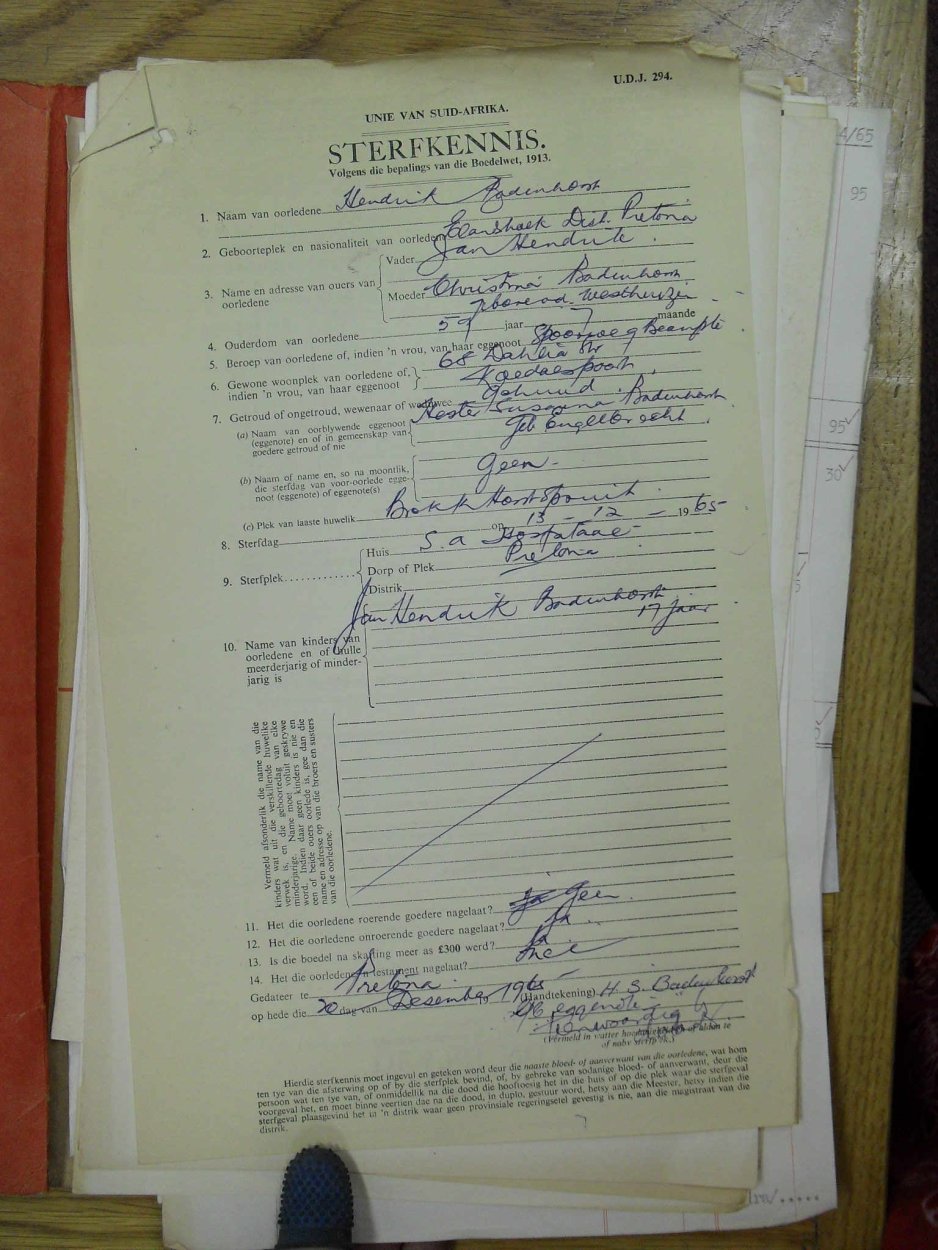 U.D.J. 294.
UNIE VAN SUID-AFRIKA.
STERFKENNIS.
Volgens die bepalings van die Boedelwet, 1913.
1. Naam van oorledene Hendrik Badenhorst
2. Geboorteplek en nasionaliteit van oorledene Dist. Pretoria
3. Name en adresse van ouers van oorledene
Vader Jan Hendrik
Moeder Christina Badenhorst
gebore v.d. Westhuizen
4. Ouderdom van oorledene 59 jaar 7 maande
5. Beroep van oorledene of, indien 'n vrou, van haar eggenoot Spoorweg Beampte
6. Gewone woonplek van oorledene of, indien 'n vrou, van haar eggenoot
68 Dahlia Str
Koedoespoort
7. Getroud of ongetroud, wewenaar of weduwee Getroud
(a) Naam van oorblywende eggenoot (eggenote) en of in gemeenskap van goedere getroud of nie
Hester Susanna Badenhorst
Geb Engelbrecht
(b) Naam of name en, so na moontlik, die sterfdag van voor-oorlede eggenoot (eggenote) of eggenote(s)
Geen
(c) Plek van laaste huwelik Bronkhorstspruit
8. Sterfdag op 13 - 12 - 1965
9. Sterfplek
Huis S.A Hospitaal
Dorp of Plek Pretoria
Distrik
10. Name van kinders van oorledene en of hulle meerderjarig of minderjarig is
Jan Hendrik Badenhorst
17 jaar
Vermeld afsonderlik die name van die kinders wat uit die verskillende huwelike verwek is, en die geboortedag van elke minderjarige. Name moet voluit geskrywe word. Indien daar geen kinders is nie en een of beide ouers oorlede is, gee dan die name en adresse op van die broers en susters van die oorledene.
11. Het die oorledene roerende goedere nagelaat? Ja Geen
12. Het die oorledene onroerende goedere nagelaat? Ja
13. Is die boedel na skatting meer as £300 werd? Ja
14. Het die oorledene 'n testament nagelaat? Nee
Gedateer te Pretoria
op hede die 20 dag van Desember 1965 (Handtekening) H. S. Badenhorst
eggenote
Teenwoordig
(Vermeld in watter hoedanigheid
of naby sterfplek.)
Hierdie sterfkennis moet ingevul en geteken word deur die naaste bloed- of aanverwant van die oorledene, wat hom
ten tye van die afsterwing op of by die sterfplek bevind, of, by gebreke van sodanige bloed- of aanverwant, deur die
persoon wat ten tye van, of onmiddellik na die dood die hooftoesig het in die huis of op die plek waar die sterfgeval
voorgeval het, en moet binne veertien dae na die dood, in duplo, gestuur word, hetsy aan die Meester, hetsy indien die
sterfgeval plaasgevind het in 'n distrik waar geen provinsiale regeringsetel gevestig is nie, aan die magistraat van die
distrik.
4/65
95
95
30